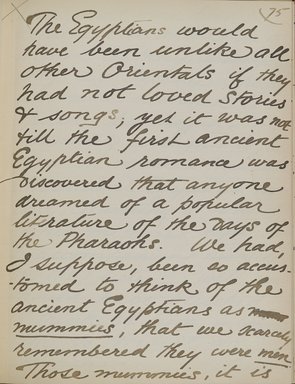 75
The Egyptians would
have been unlike all
other Orientals if they
had not loved stories
& songs; yet it was not
till the first ancient
Egyptian romance was
discovered that anyone
dreamed of a popular
literature of the days of
the Pharaohs. We had,
I suppose, been so accus-
-tomed to think of the
ancient Egyptians as
mummies, that we scarcely
remembered they were men
Those mummies, it is